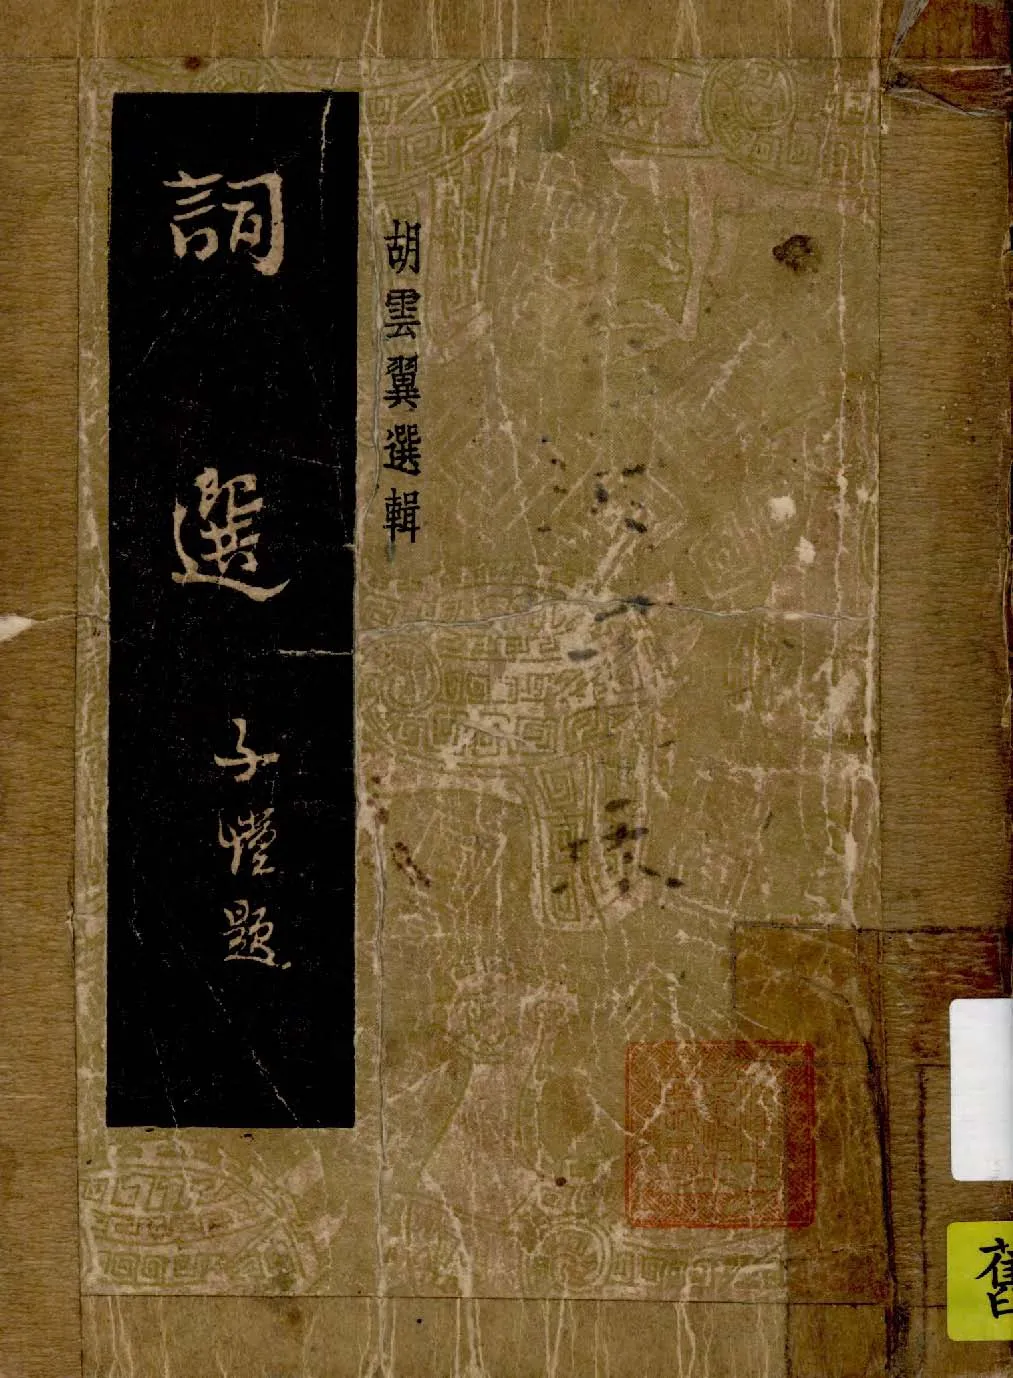 胡雲翼選輯
詞選
子愷題
舊